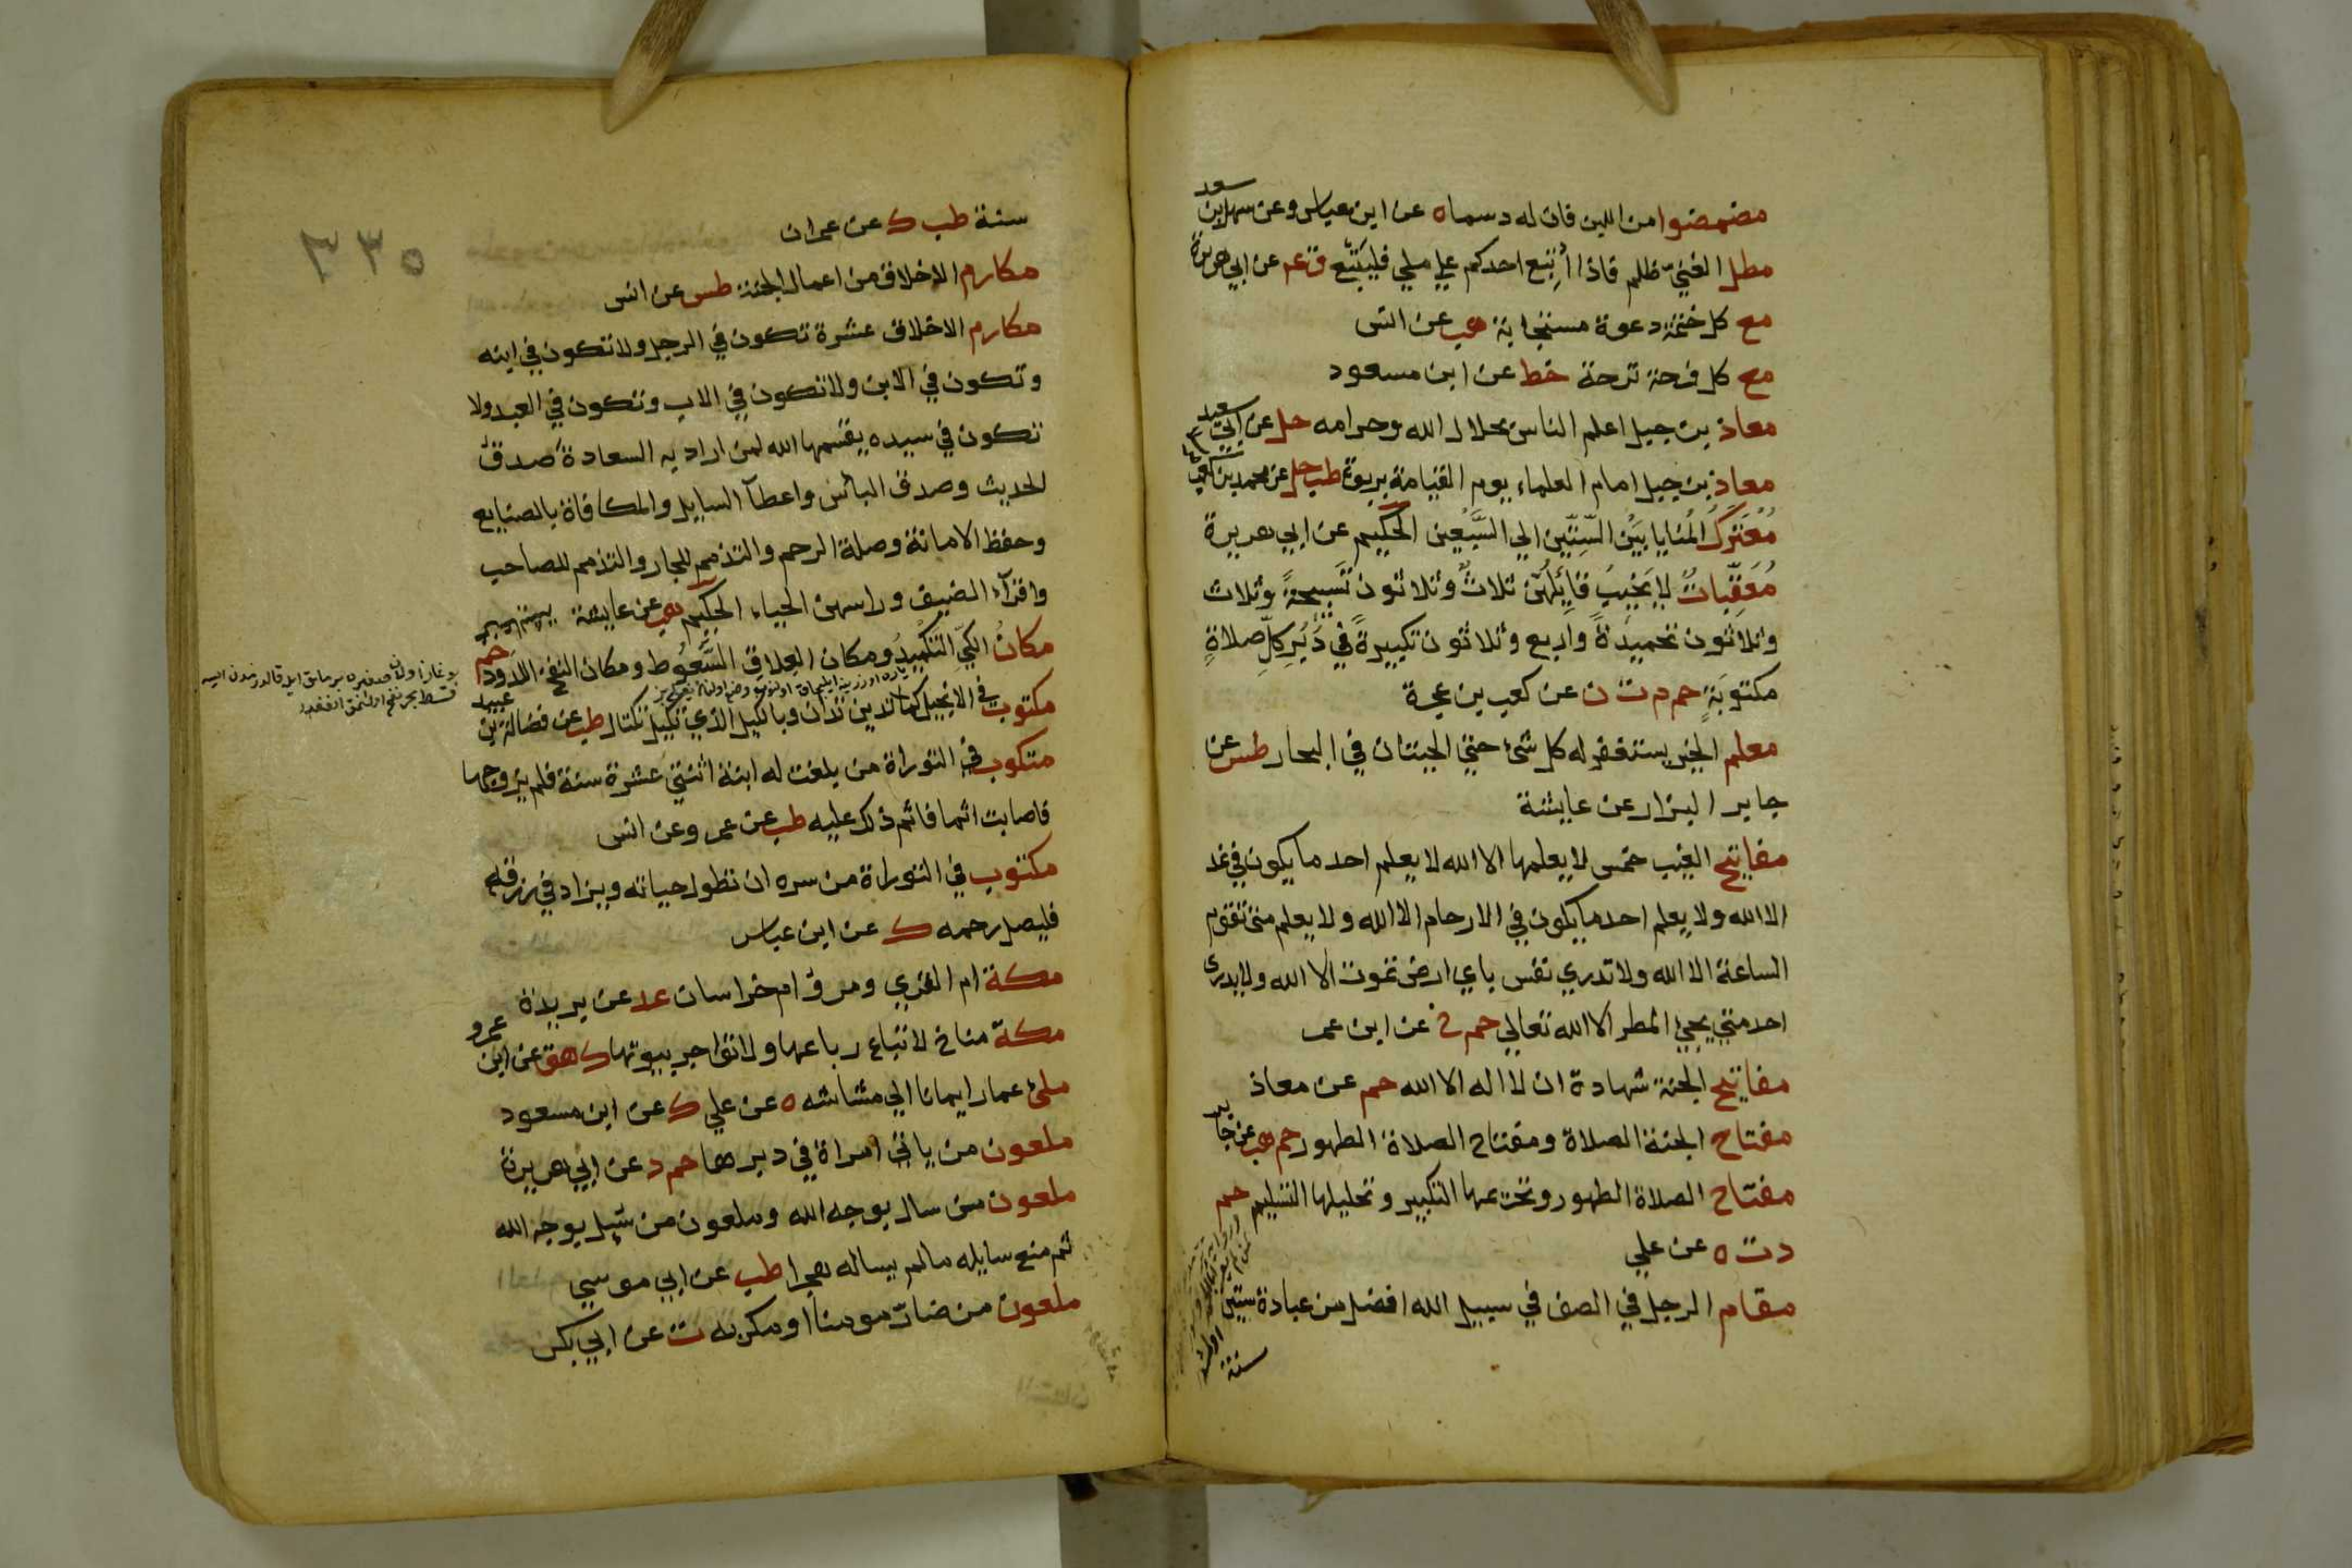 مضمضوا من اللبن فان له دسما ه عن ابن عباس وعن سهل بن سعد
مطل الغنيّ ظلم فاذا أُتبع احدكم علي ملي فليتبّع ق عم عن ابي هريرة
مع كل ختمة دعوة مستجابة هب عن انس
مع كل فرحة ترحة خط عن ابن مسعود
معاذ بن جبل اعلم الناس بحلال الله وحرامه حل عن ابي سعيد
معاذ بن جبل امام العلماء يوم القيامة برتوة طب حل عن محمد بن كعب
مُعْتَرَكُ المُنايا بَيْنَ السِّتِّينَ الي السَّبْعِينَ الحكيم عن ابي هريرة
مُعَقِّبَاتٌ لا يَخِيبُ قَائِلُهُنَّ ثلاثٌ وثلاثون تَسْبِيحَةً وثلاث
وثلاثون تحميدَةً واربع وثلاثون تكبيرةً في دُبُرِ كلِّ صلاةٍ
مكتوبَةٍ حم م ت ن عن كعب بن عجرة
معلم الخير يستغفر له كل شئ حتي الحيتان في البحار طس عن
جابر البزار عن عايشة
مفاتيح الغيب خمس لا يعلمها الا الله لا يعلم احد ما يكون في غد
الا الله ولا يعلم احد ما يكون في الارحام الا الله ولا يعلم متي تقوم
الساعة الا الله ولا تدري نفس باي ارض تموت الا الله ولا يدري
احد متي يجئ المطر الا الله تعالي حم خ عن ابن عمر
مفاتيح الجنة شهادة ان لا اله الا الله حم عن معاذ
مفتاح الجنة الصلاة ومفتاح الصلاة الطهور حم هب عن جابر
مفتاح الصلاة الطهور وتحريمها التكبير وتحليلها التسليم حم
د ت ه عن علي
مقام الرجل في الصف في سبيل الله افضل من عبادة ستين
سنة
٣٣٥
سنة طب ك عن عمران
مكارم الاخلاق من اعمال الجنة طس عن انس
مكارم الاخلاق عشرة تكون في الرجل ولا تكون في ابنه
وتكون في الابن ولا تكون في الاب وتكون في العبد ولا
تكون في سيده يقسمها الله لمن اراد به السعادة صدق
الحديث وصدق البائس واعطآ السايل والمكافاة بالصنايع
وحفظ الامانة وصلة الرحم والتذمم للجار والتذمم للصاحب
واقرآء الضيف وراسهن الحياء الحكيم هب عن عايشة
مكانُ الكيِّ التكْمِيدُ ومكان العِلاقِ السَّعُوط ومكان النفخ اللدود حم
مكتوب في الانجيل كما تدين تدان وبالكيل الذي تكيل تكتال طب عن فضالة بن عبيد
متكوب في التوراة من بلغت له ابنة اثنتي عشرة سنة فلم يزوجها
فاصابت اثما فاثم ذلك عليه طب عن عمر وعن انس
مكتوب في التوراة من سره ان تطول حياته ويزاد في رزقه
فليصل رحمه ك عن ابن عباس
مكة ام القري ومرو ام خراسان عد عن بريدة
مكة مناخ لا تباع رباعها ولا تواجر بيوتها ك هق عن ابن عمرو
ملئ عمار ايمانا الي مشاشه ه عن علي ك عن ابن مسعود
ملعون من ياتي امراة في دبرها حم د عن ابي هريرة
ملعون من سال بوجه الله وملعون من سيل بوجه الله
ثم منع سايله مالم يساله هجرا طب عن ابي موسي
ملعون من ضارّ مومنا او مكر به ت عن ابي بكر